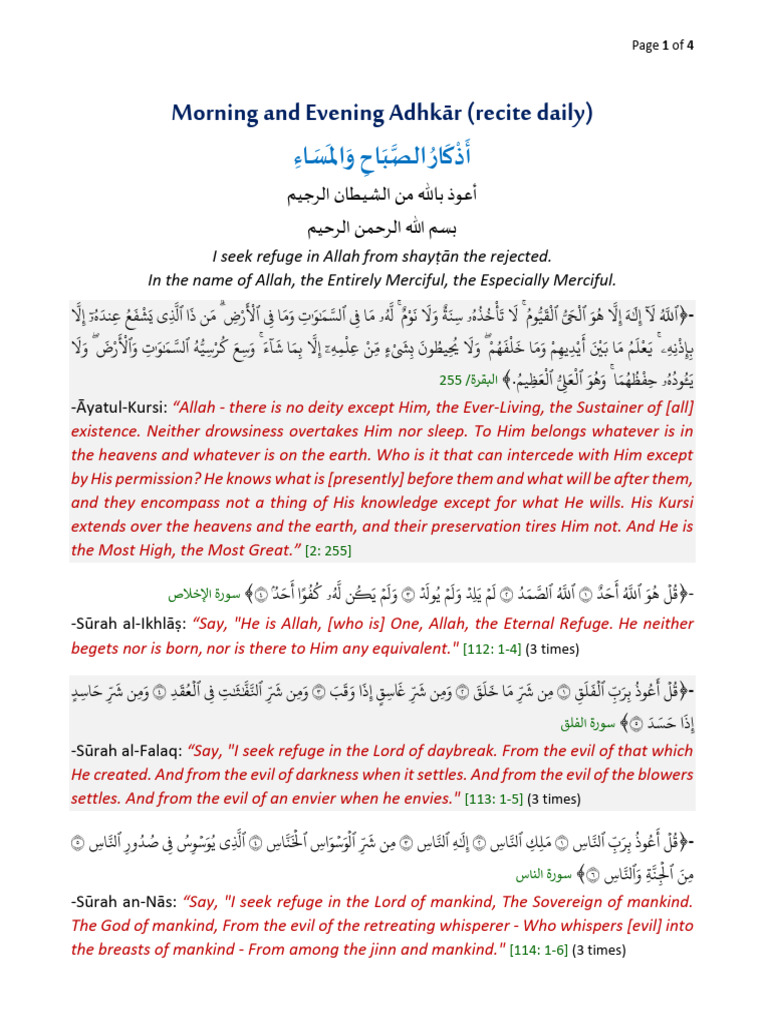 Page 1 of 4
Morning and Evening Adhkār (recite daily)
أَذْكَارُ الصَّبَاحِ وَالمَسَاءِ
أعوذ بالله من الشيطان الرجيم
بسم الله الرحمن الرحيم
I seek refuge in Allah from shayṭān the rejected.
In the name of Allah, the Entirely Merciful, the Especially Merciful.
-﴿ٱللَّهُ لَآ إِلَٰهَ إِلَّا هُوَ ٱلْحَىُّ ٱلْقَيُّومُ ۚ لَا تَأْخُذُهُۥ سِنَةٌ وَلَا نَوْمٌ ۚ لَّهُۥ مَا فِى ٱلسَّمَٰوَٰتِ وَمَا فِى ٱلْأَرْضِ ۗ مَن ذَا ٱلَّذِى يَشْفَعُ عِندَهُۥٓ إِلَّا
بِإِذْنِهِۦ ۚ يَعْلَمُ مَا بَيْنَ أَيْدِيهِمْ وَمَا خَلْفَهُمْ ۖ وَلَا يُحِيطُونَ بِشَىْءٍ مِّنْ عِلْمِهِۦٓ إِلَّا بِمَا شَآءَ ۚ وَسِعَ كُرْسِيُّهُ ٱلسَّمَٰوَٰتِ وَٱلْأَرْضَ ۖ وَلَا
يَـُٔودُهُۥ حِفْظُهُمَا ۚ وَهُوَ ٱلْعَلِىُّ ٱلْعَظِيمُ.﴾ البقرة/ 255
-Āyatul-Kursi: “Allah - there is no deity except Him, the Ever-Living, the Sustainer of [all]
existence. Neither drowsiness overtakes Him nor sleep. To Him belongs whatever is in
the heavens and whatever is on the earth. Who is it that can intercede with Him except
by His permission? He knows what is [presently] before them and what will be after them,
and they encompass not a thing of His knowledge except for what He wills. His Kursi
extends over the heavens and the earth, and their preservation tires Him not. And He is
the Most High, the Most Great.” [2: 255]
-﴿قُلْ هُوَ ٱللَّهُ أَحَدٌ ۝١ ٱللَّهُ ٱلصَّمَدُ ۝٢ لَمْ يَلِدْ وَلَمْ يُولَدْ ۝٣ وَلَمْ يَكُن لَّهُۥ كُفُوًا أَحَدٌۢ ۝٤﴾ سورة الإخلاص
-Sūrah al-Ikhlāṣ: “Say, "He is Allah, [who is] One, Allah, the Eternal Refuge. He neither
begets nor is born, nor is there to Him any equivalent." [112: 1-4] (3 times)
-﴿قُلْ أَعُوذُ بِرَبِّ ٱلْفَلَقِ ۝١ مِن شَرِّ مَا خَلَقَ ۝٢ وَمِن شَرِّ غَاسِقٍ إِذَا وَقَبَ ۝٣ وَمِن شَرِّ ٱلنَّفَّٰثَٰتِ فِى ٱلْعُقَدِ ۝٤ وَمِن شَرِّ حَاسِدٍ
إِذَا حَسَدَ ۝٥﴾ سورة الفلق
-Sūrah al-Falaq: “Say, "I seek refuge in the Lord of daybreak. From the evil of that which
He created. And from the evil of darkness when it settles. And from the evil of the blowers
settles. And from the evil of an envier when he envies." [113: 1-5] (3 times)
-﴿قُلْ أَعُوذُ بِرَبِّ ٱلنَّاسِ ۝١ مَلِكِ ٱلنَّاسِ ۝٢ إِلَٰهِ ٱلنَّاسِ ۝٣ مِن شَرِّ ٱلْوَسْوَاسِ ٱلْخَنَّاسِ ۝٤ ٱلَّذِى يُوَسْوِسُ فِى صُدُورِ ٱلنَّاسِ ۝٥
مِنَ ٱلْجِنَّةِ وَٱلنَّاسِ ۝٦﴾ سورة الناس
-Sūrah an-Nās: “Say, "I seek refuge in the Lord of mankind, The Sovereign of mankind.
The God of mankind, From the evil of the retreating whisperer - Who whispers [evil] into
the breasts of mankind - From among the jinn and mankind." [114: 1-6] (3 times)